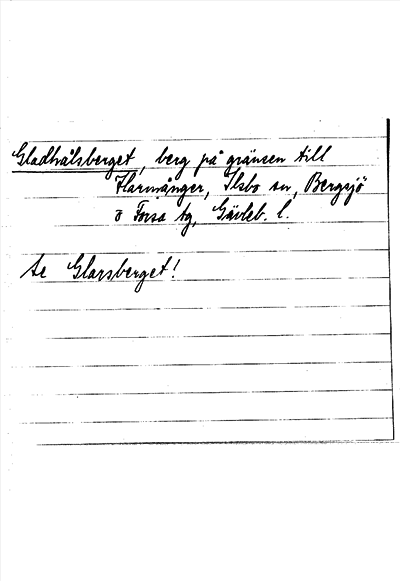 Gladhålsberget, berg på gränsen till
Harmånger, Ilsbo sn, Bergsjö
o Forsa tg, Gävleb. l.
Se Glarsberget!